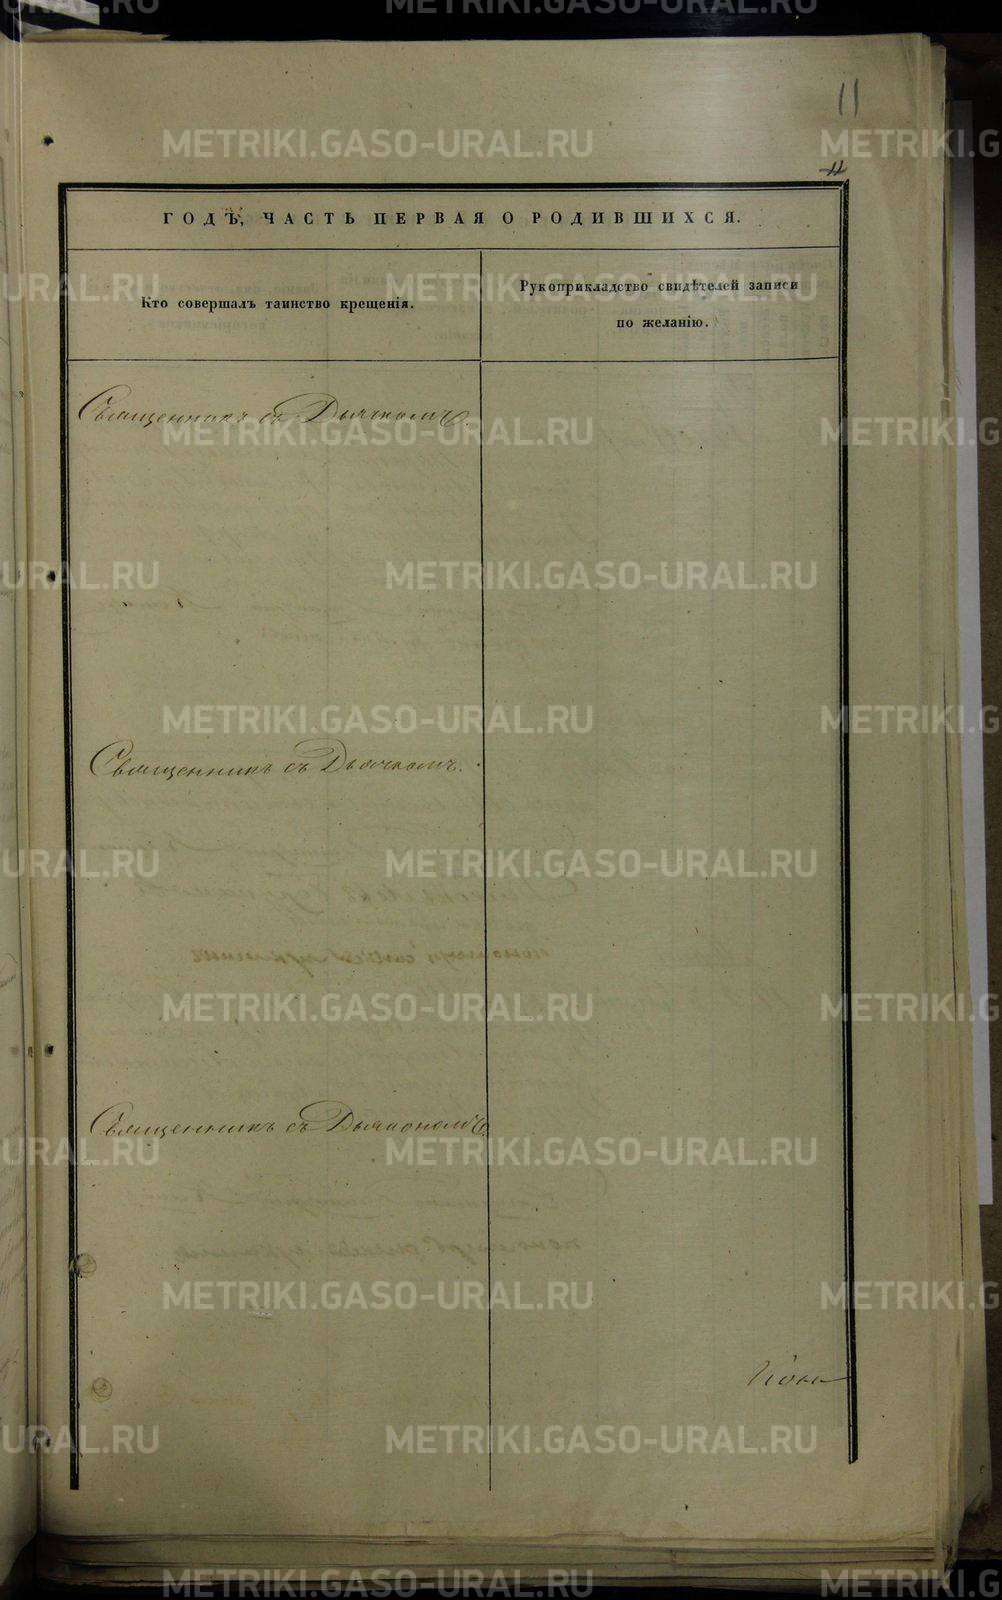 11
11
ГОДЪ, ЧАСТЬ ПЕРВАЯ О РОДИВШИХСЯ.
Кто совершалъ таинство крещенія.
Рукоприкладство свидѣтелей записи
по желанію.
Священникъ съ Дьячкомъ.
Священникъ съ Дьячкомъ.
Священникъ съ Дьякономъ.
METRIKI.GASO-URAL.RU